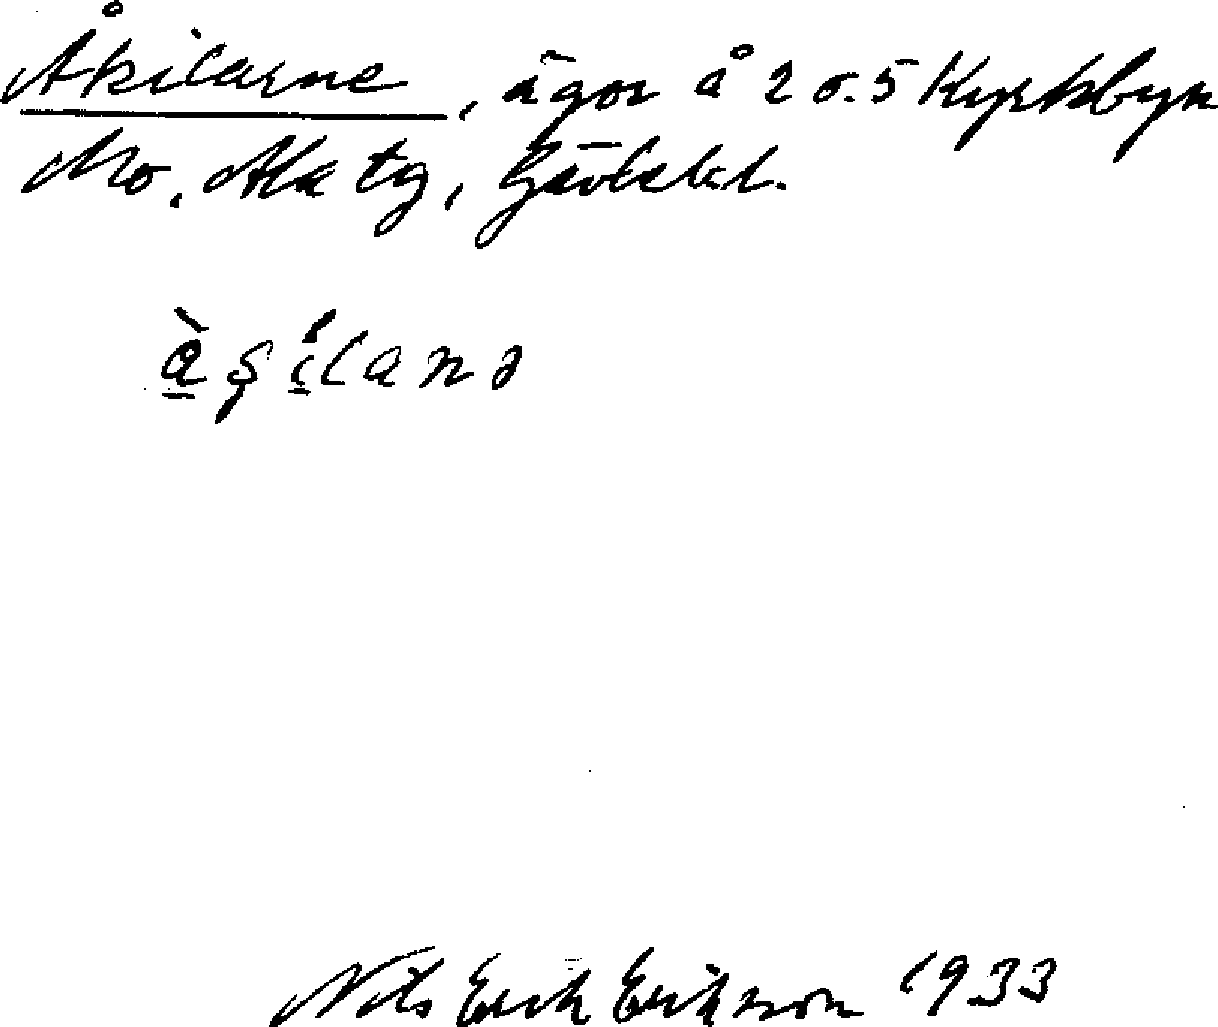 Åkilarne, ägor å 2 o. 5 Kyrkbyn
Mo, Ala tg, Gävlebl.
Nils Erik Erikson 1933